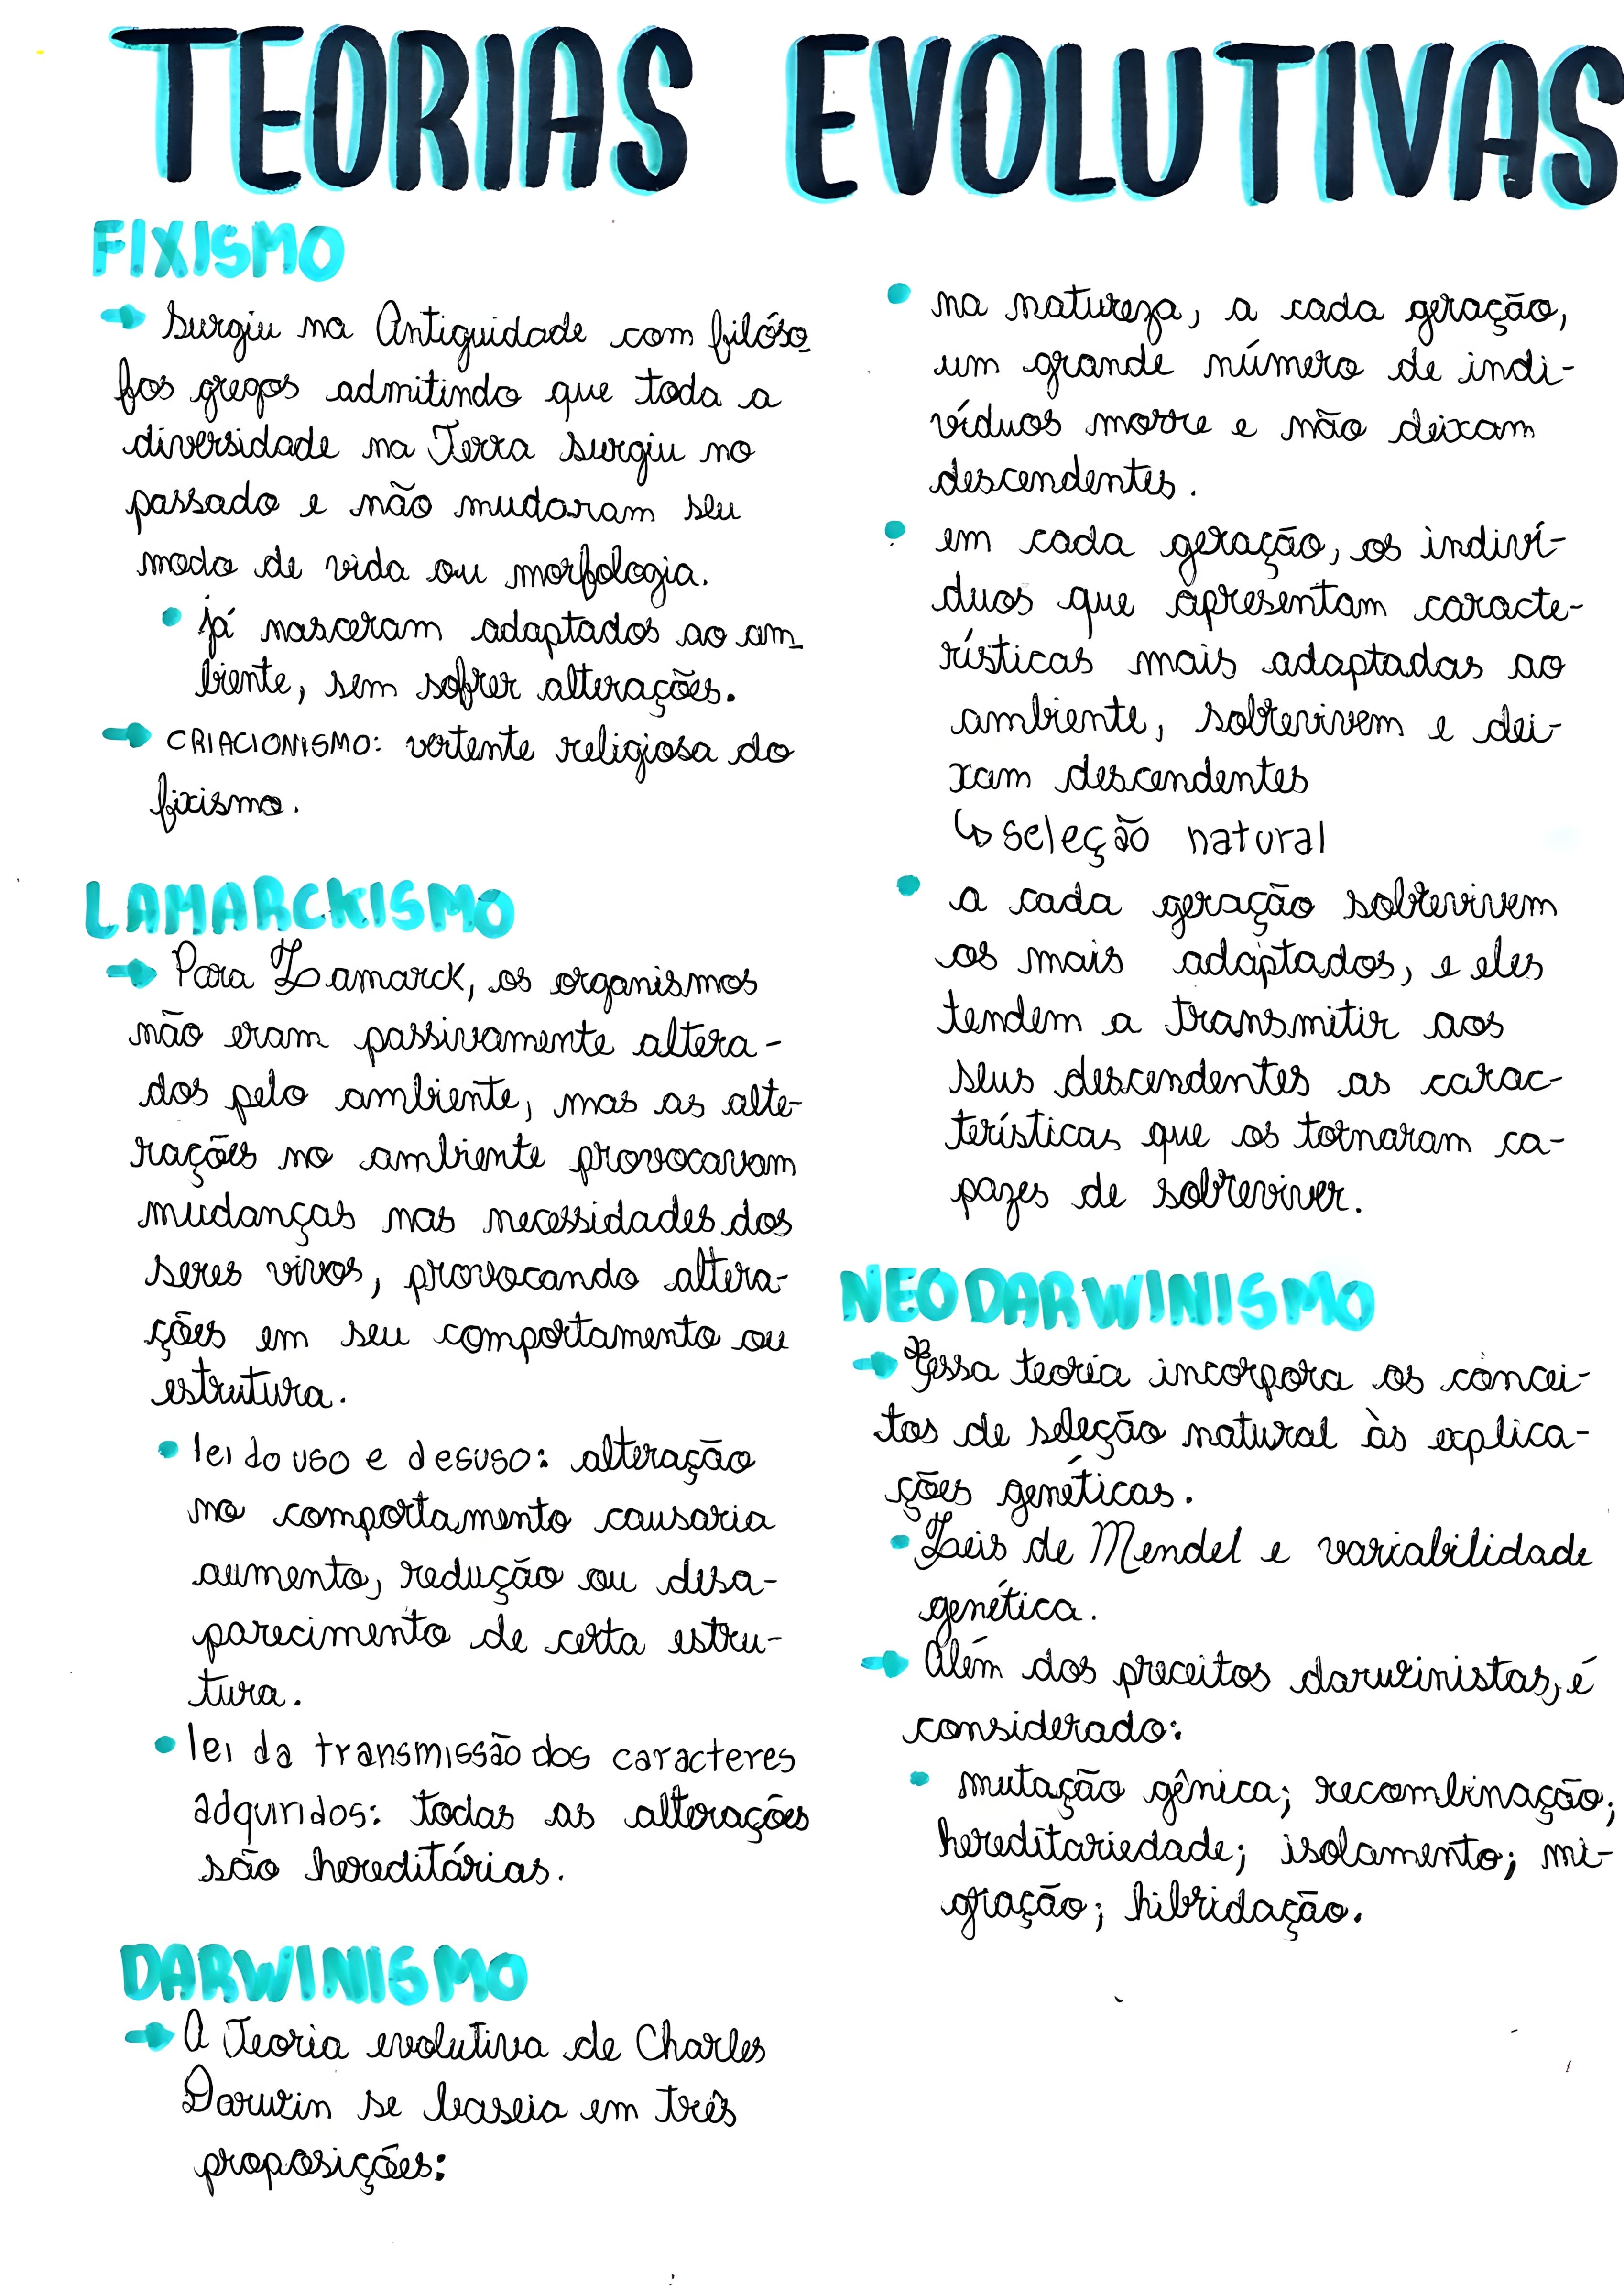 TEORIAS EVOLUTIVAS
FIXISMO
→ Surgiu na Antiguidade com filóso
fos gregos admitindo que toda a
diversidade na Terra surgiu no
passado e não mudaram seu
modo de vida ou morfologia.
• já nasceram adaptados ao am-
biente, sem sofrer alterações.
→ CRIACIONISMO: vertente religiosa do
fixismo.
LAMARCKISMO
→ Para Lamarck, os organismos
não eram passivamente altera-
dos pelo ambiente, mas as alte-
rações no ambiente provocavam
mudanças nas necessidades dos
seres vivos, provocando altera-
ções em seu comportamento ou
estrutura.
• lei do uso e desuso: alteração
no comportamento causaria
aumento, redução ou desa-
parecimento de certa estru-
tura.
• lei da transmissão dos caracteres
adquiridos: todas as alterações
são hereditárias.
DARWINISMO
→ A Teoria evolutiva de Charles
Darwin se baseia em três
proposições:
• na natureza, a cada geração,
um grande número de indi-
víduos morre e não deixam
descendentes.
• em cada geração, os indiví-
duos que apresentam caracte-
rísticas mais adaptadas ao
ambiente, sobrevivem e dei-
xam descendentes
↳ seleção natural
• a cada geração sobrevivem
os mais adaptados, e eles
tendem a transmitir aos
seus descendentes as carac-
terísticas que os tornaram ca-
pazes de sobreviver.
NEODARWINISMO
→ Essa teoria incorpora os concei-
tos de seleção natural às explica-
ções genéticas.
• Leis de Mendel e variabilidade
genética.
→ Além dos preceitos darwinistas, é
considerado:
• mutação gênica; recombinação;
hereditariedade; isolamento; mi-
gração; hibridação.